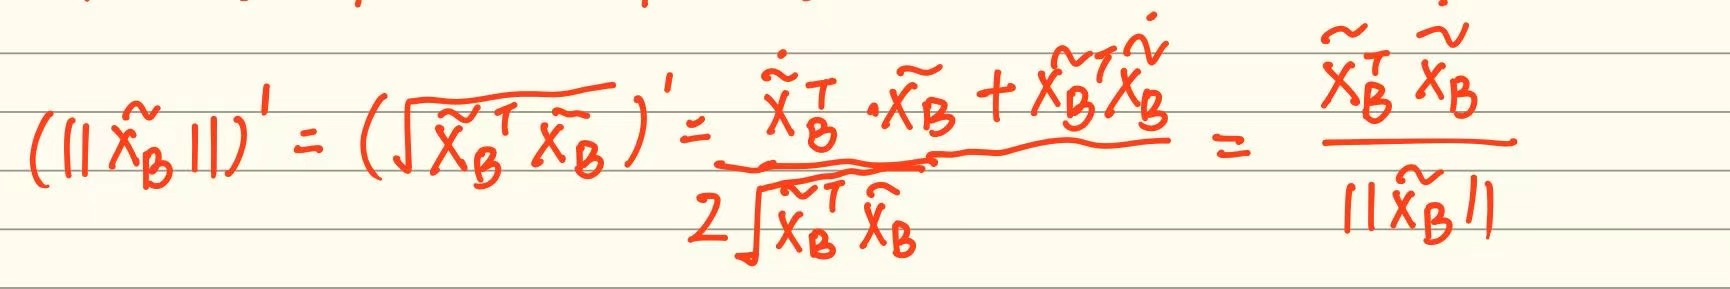 $(||\tilde{x}_B||)' = (\sqrt{\tilde{x}_B^T \tilde{x}_B})' = \frac{\dot{\tilde{x}}_B^T \cdot \tilde{x}_B + \tilde{x}_B^T \dot{\tilde{x}}_B}{2\sqrt{\tilde{x}_B^T \tilde{x}_B}} = \frac{\tilde{x}_B^T \dot{\tilde{x}}_B}{||\tilde{x}_B||}$